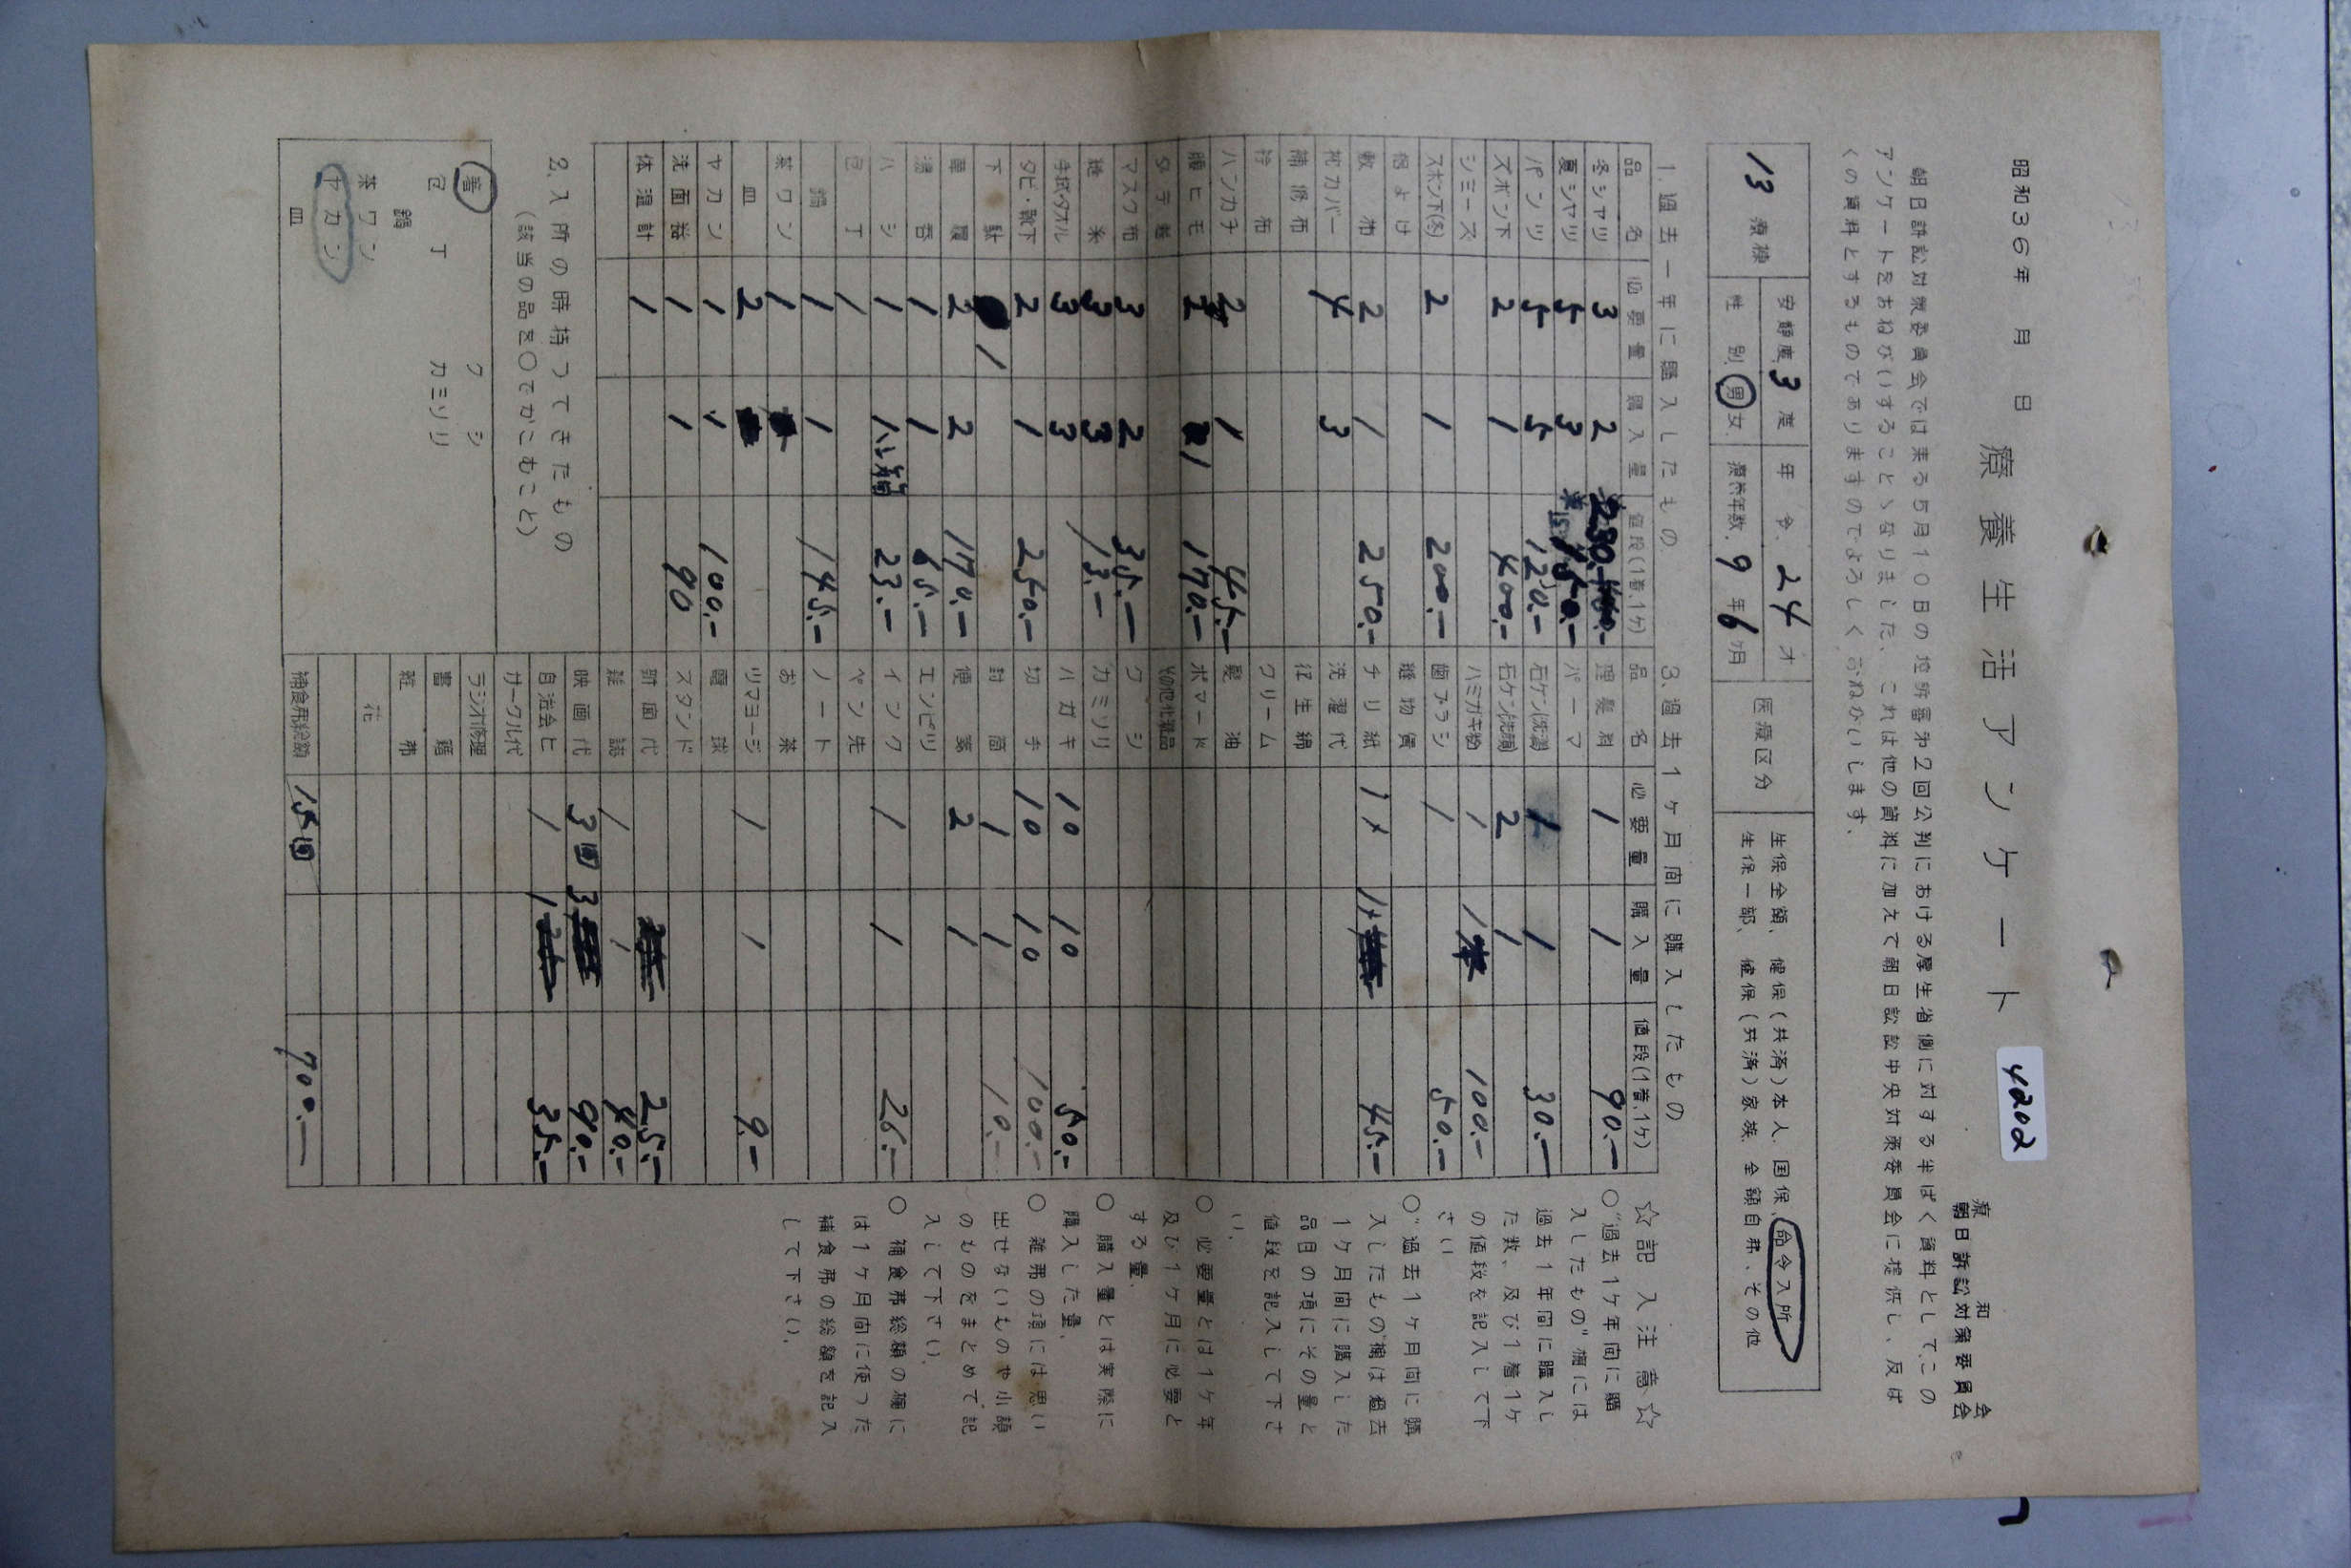 昭和36年 月 日
療養生活アンケート
4202
療和会
朝日訴訟対策委員会
朝日訴訟対策委員会では来る5月10日の控訴審第2回公判における厚生省側に対する半ばく資料として、この
アンケートをおねがいすることゝなりました、これは他の資料に加えて朝日訴訟中央対策委員会に提供し、反ば
くの資料とするものでありますのでよろしくおねがいします。
13 療棟
安静度 3 度
年令 24 才
性別 男 女
療養年数 9年6ヶ月
医療区分
生保全額、健保(共済)本人、国保、命令入所
生保一部、健保(共済)家族、全額自弗、その他
1.過去一年に購入したもの
品名 必要量 購入量 値段(1着、1ヶ)
冬シャツ 3 2 230.-
夏シャツ 5 3 150.-
パンツ 5 5 120.-
ズボン下 2 1 400.-
シミーズ
スボン下(冬) 2 1 200.-
敷布 2 1 250.-
枕カバー 4 3
補修布
ハンカチ 2 1 45.-
腰ヒモ 1 170.-
マスク布 3 2 35.-
3 3 13.-
手拭・タオル 3 3
タビ・靴下 2 1 250.-
下駄 1
草履 2 2 170.-
湯呑 1 1 65.-
ハシ 1 1 小箱 23.-
包丁 1
鍋 1 1 145.-
茶ワン 1
皿 2
ヤカン 1 1 100.-
洗面器 1 1 90
体温計 1
2.入所の時持ってきたもの
(該当の品を○でかこむこと)
箸 クシ
包丁 カミソリ
鍋
茶ワン
ヤカン
皿
3.過去1ヶ月間に購入したもの
品名 必要量 購入量 値段(1着、1ヶ)
理髪料 1 1 90.-
パーマ
石ケン(洗濯) 1 1 30.-
石ケン(洗顔) 2 1
ハミガキ粉 1 1 100.-
歯ブラシ 1 50.-
チリ紙 1 1 45.-
洗濯代
衛生綿
クリーム
髪油
ポマード
その他化粧品
クシ
カミソリ
ハガキ 10 10 50.-
切手 10 10 100.-
封筒 1 1 10.-
便箋 2 1
エンピツ
インク 1 1 26.-
ペン先
ノート
お茶
ツマヨージ 1 1 9.-
電球
スタンド
附箇代 25.-
雑誌 1 1 40.-
映画代 3回 3 90.-
自治会ヒ 1 1 35.-
サークル代
ラジオ修理
書籍
雑弗
花
補食弗総額 15回 700.-
☆記入注意☆
○"過去1ヶ年間に購
入したもの"欄には
過去1年間に購入し
た数、及び1着1ヶ
の値段を記入して下
さい
○"過去1ヶ月間に購
入したもの"欄は過去
1ヶ月間に購入した
品目の項にその量と
値段を記入して下さ
い、
○ 必要量とは1ヶ年
及び1ヶ月に必要と
する量、
○ 購入量とは実際に
購入した量、
○ 雑弗の項には思い
出せないものや小額
のものをまとめて記
入して下さい、
○ 補食弗総額の欄に
は1ヶ月間に使った
補食弗の総額を記入
して下さい、